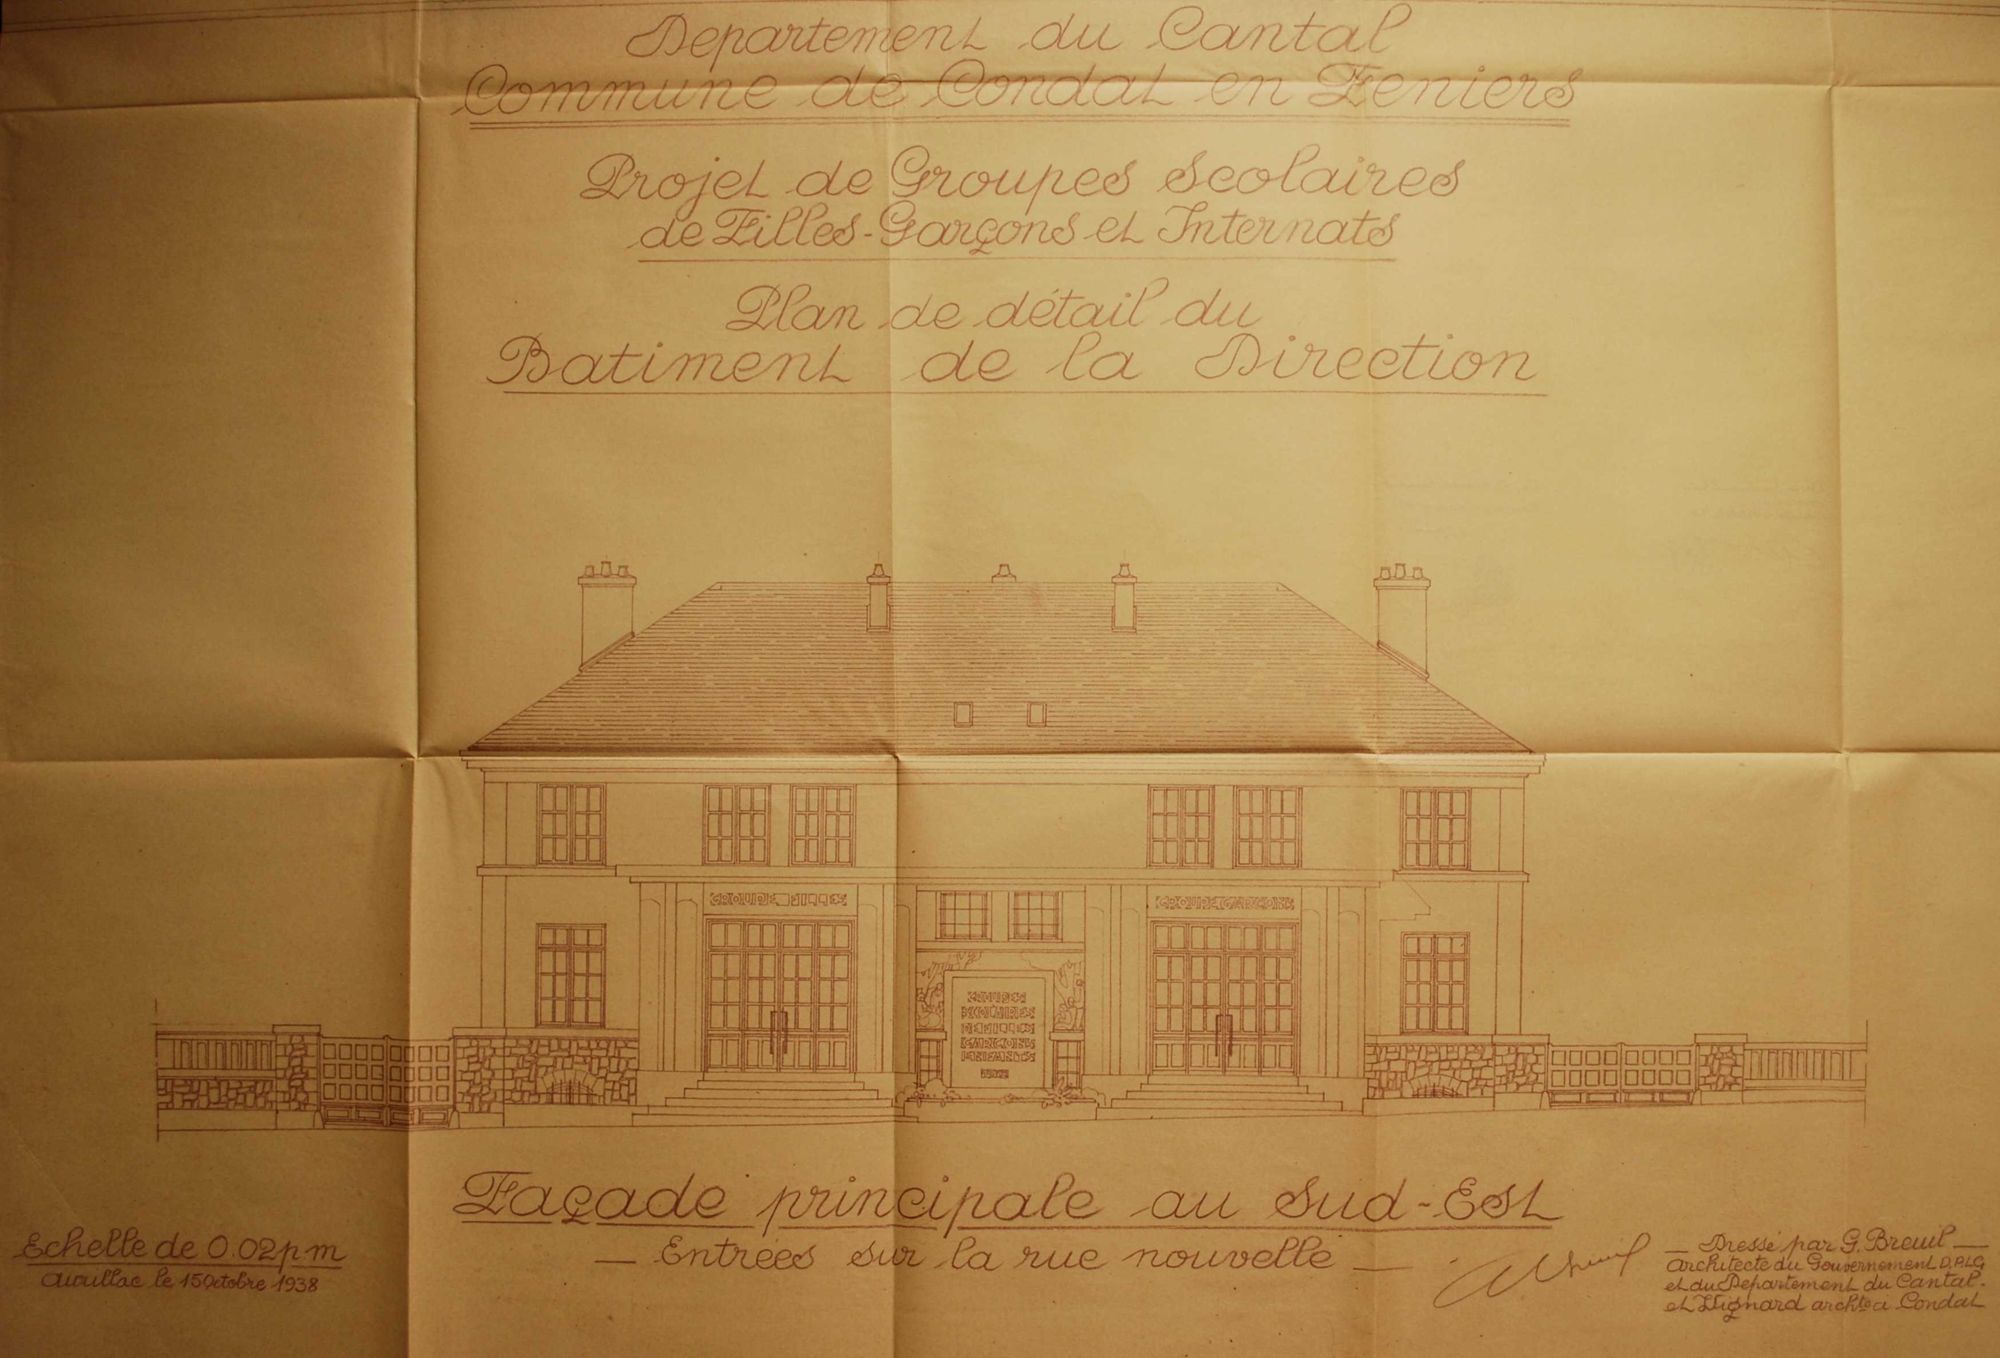 Departement du Cantal
Commune de Condat en Feniers
Projet de Groupes Scolaires
de Filles-Garçons et Internats
Plan de détail du
Batiment de la Direction
GROUPE FILLES
GROUPE GARCONS
GROUPES
SCOLAIRES
DE FILLES
GARCONS
Façade principale au Sud-Est
— Entrées sur la rue nouvelle —
Echelle de 0.02 p m
Aurillac le 15 Octobre 1938
— Dressé par G. Breuil —
Architecte du Gouvernement D.P.L.G
et du Departement du Cantal.
et Vignard archte a Condat